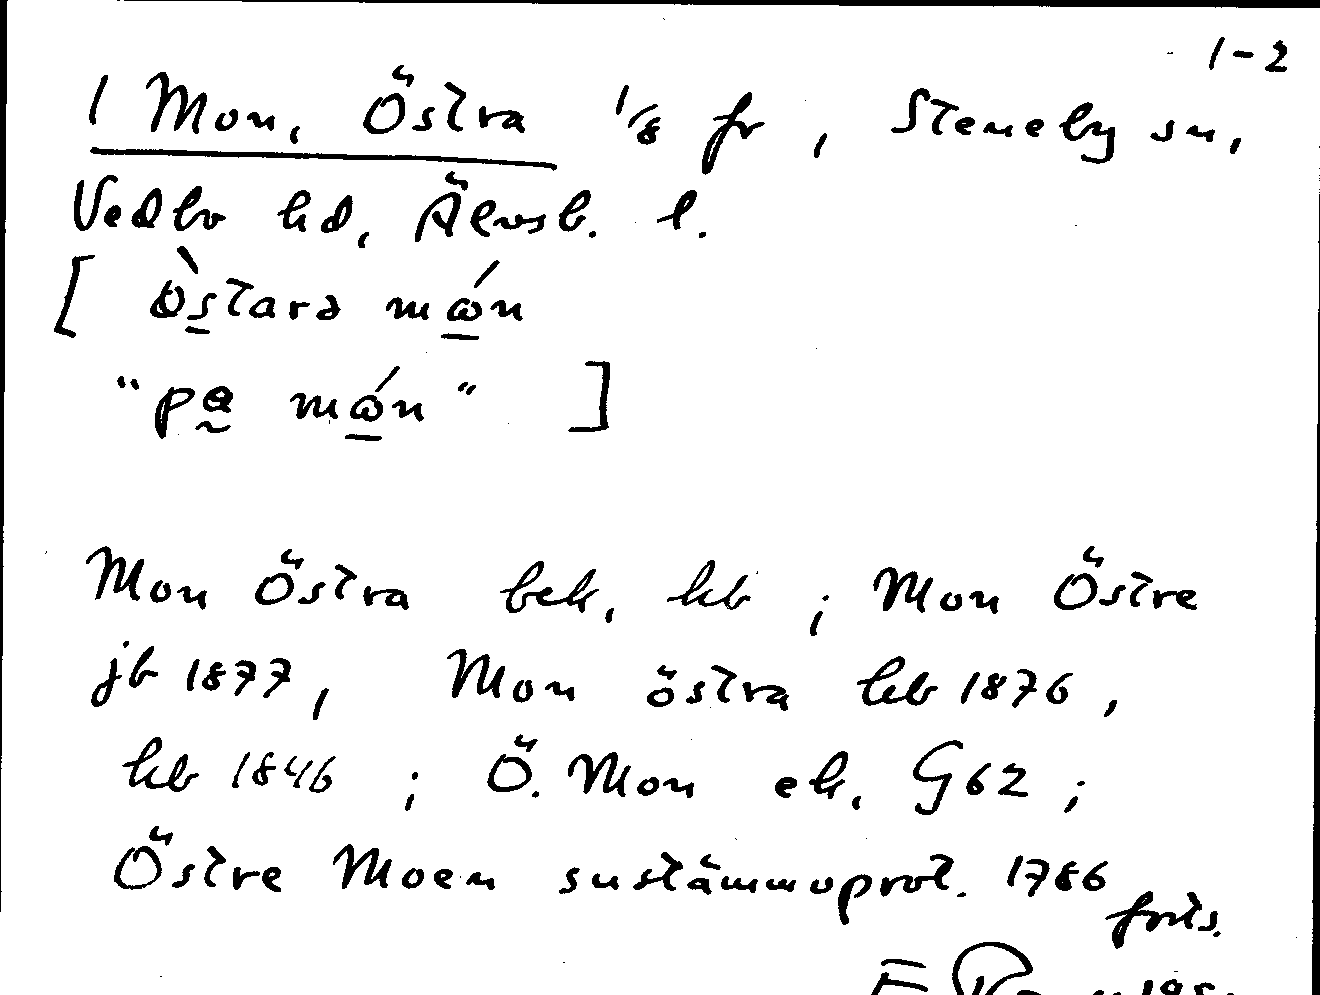 1-2
1 Mon, Östra 1/8 fr, Steneby sn,
Vedbo hd, Älvsb. l.
[ òstarə mǿn
"pa mǿn" ]
Mon Östra bek, kb ; Mon Östre
jb 1877, Mon östra kb 1876,
kb 1846 ; Ö. Mon ek, G62 ;
Östre Moen sustämmoprot. 1786
forts.